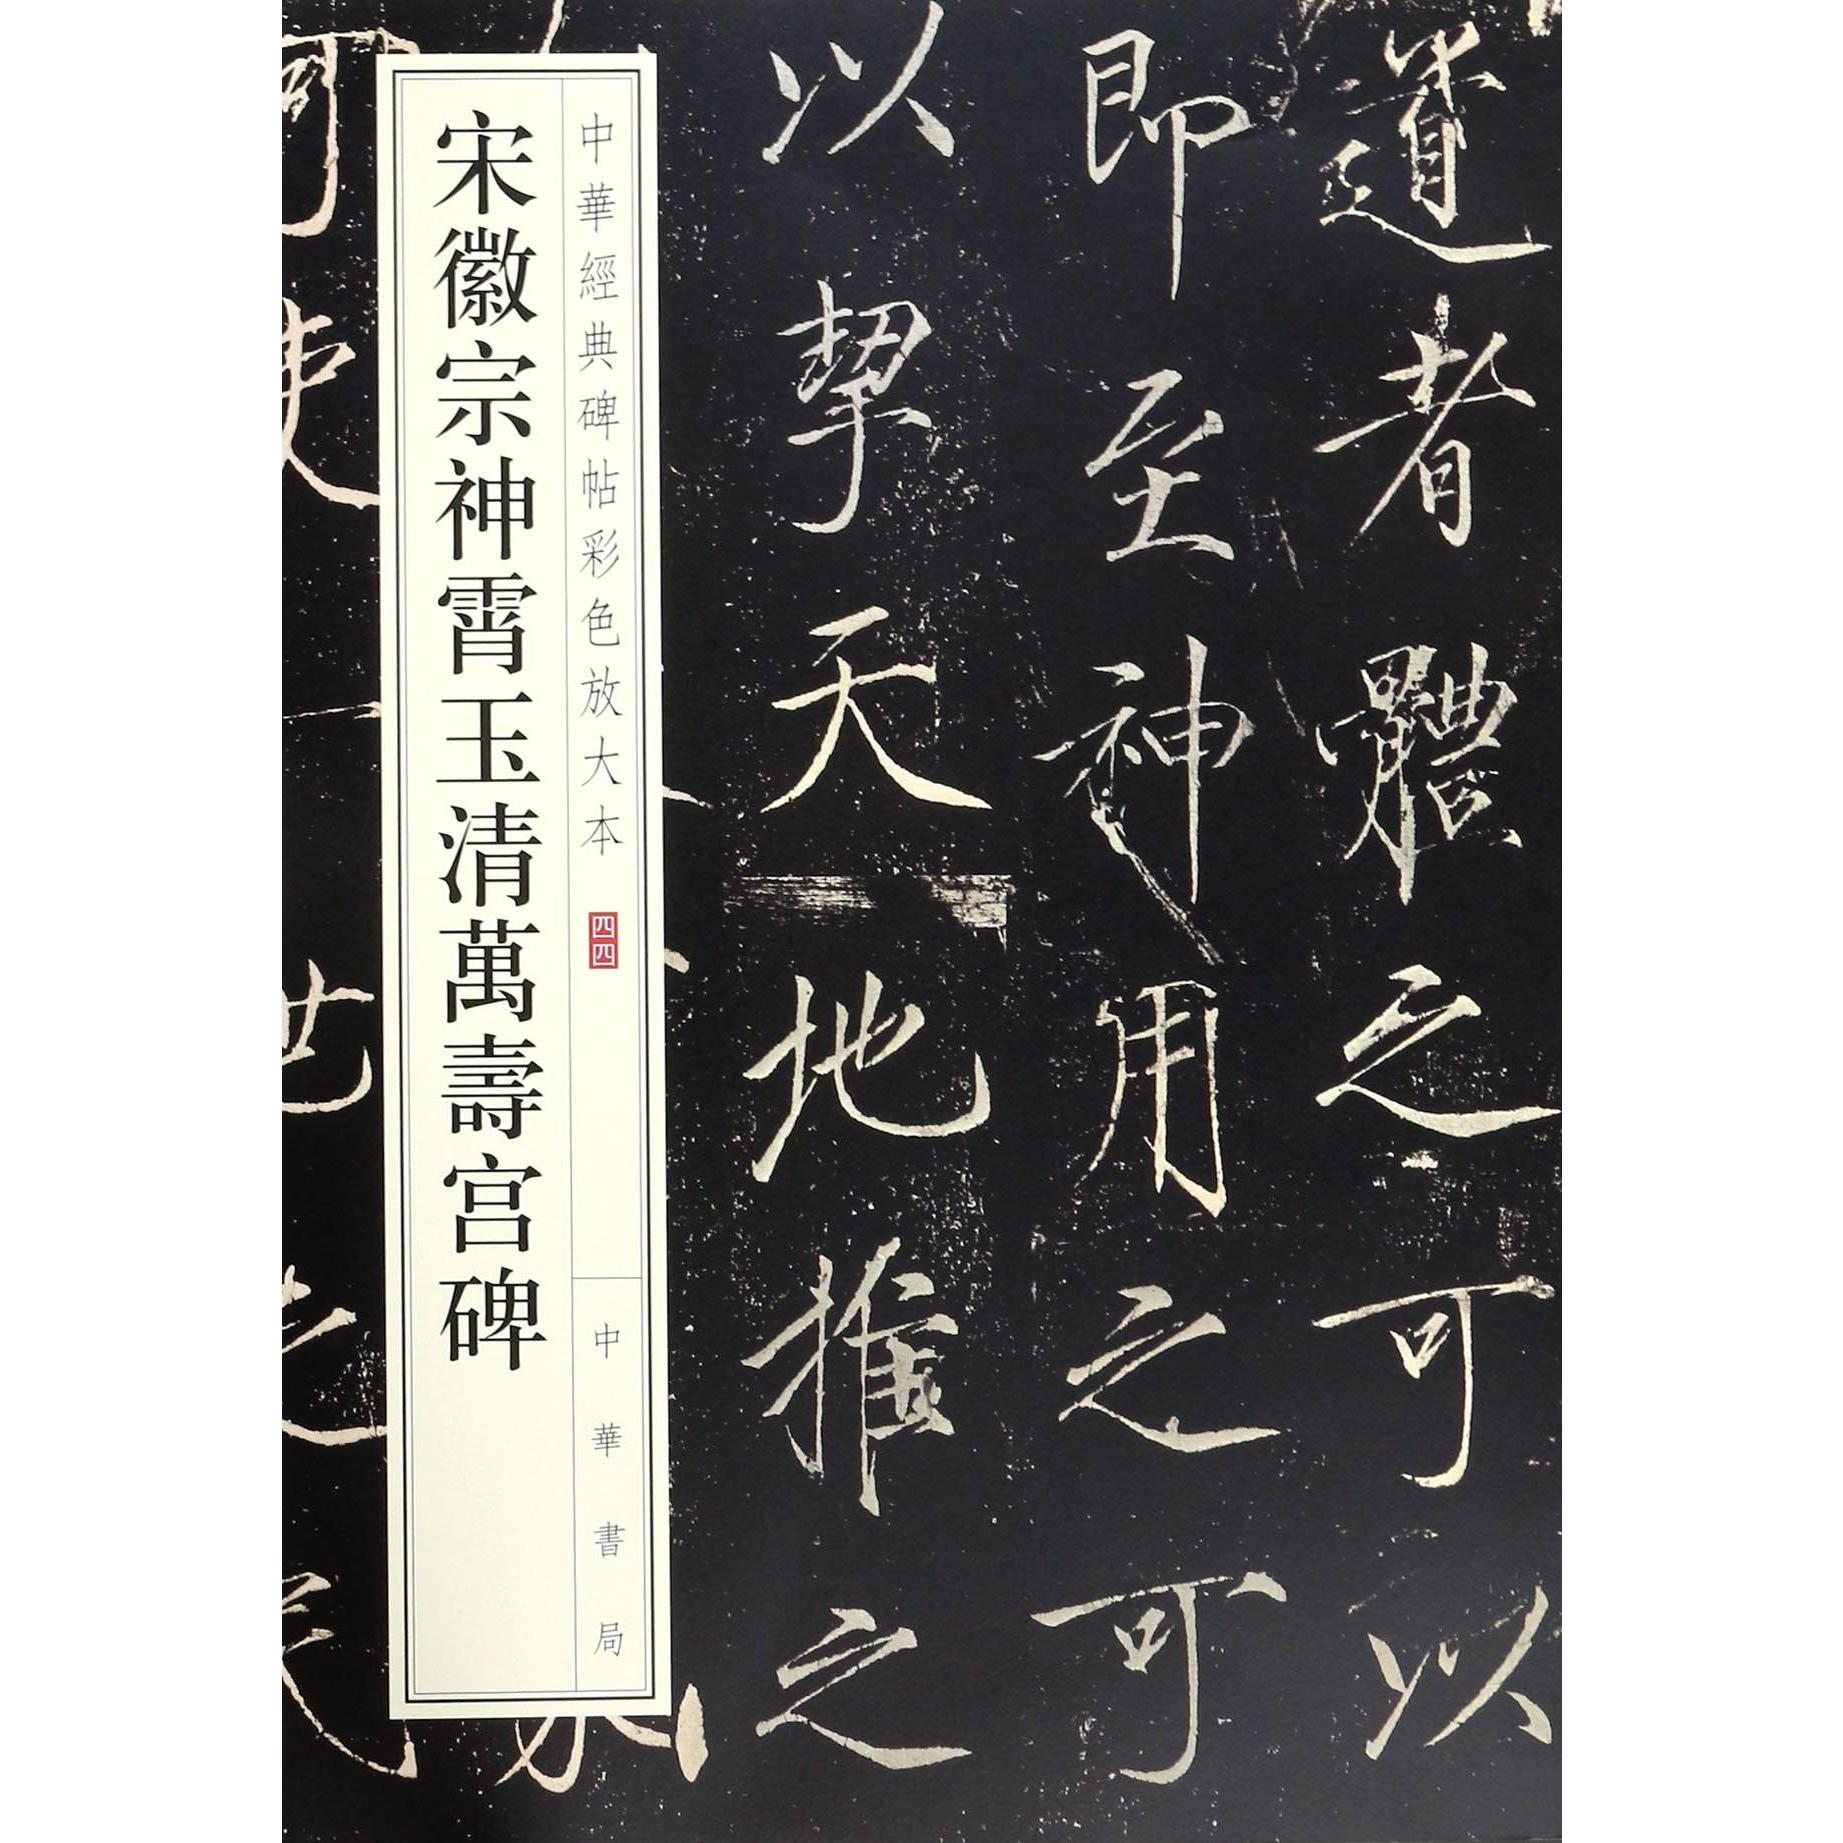 道者體之可以
即至神用之可
以挈天地推之
中華經典碑帖彩色放大本 四四
中華書局
宋徽宗神霄玉清萬壽宮碑